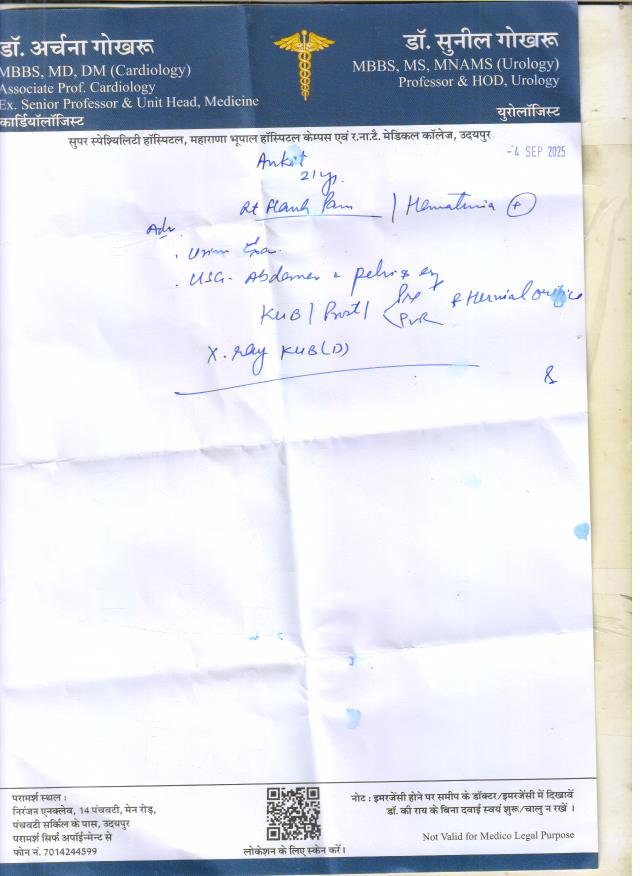 डॉ. अर्चना गोखरू
MBBS, MD, DM (Cardiology)
Associate Prof. Cardiology
Ex. Senior Professor & Unit Head, Medicine
कार्डियॉलॉजिस्ट
डॉ. सुनील गोखरू
MBBS, MS, MNAMS (Urology)
Professor & HOD, Urology
युरोलॉजिस्ट
सुपर स्पेश्यिलिटी हॉस्पिटल, महाराणा भूपाल हॉस्पिटल केम्पस एवं र.ना.टै. मेडिकल कॉलेज, उदयपुर
-4 SEP 2025
Ankit
21 yr.
Rt Flank Pain / Hematuria +
Adv.
. Urine
. USG- Abdomen & pelvis
KUB / Prost / Pre & Hernial orifice
PVR
X-ray KUB (D)
परामर्श स्थल :
निरंजन एनक्लेव, 14 पंचवटी, मेन रोड़,
पंचवटी सर्किल के पास, उदयपुर
परामर्श सिर्फ अपॉईन्मेन्ट से
फोन नं. 7014244599
लोकेशन के लिए स्केन करें।
नोट : इमरजेंसी होने पर समीप के डॉक्टर/इमरजेंसी में दिखावें
डॉ. की राय के बिना दवाई स्वयं शुरू/चालु न रखें ।
Not Valid for Medico Legal Purpose